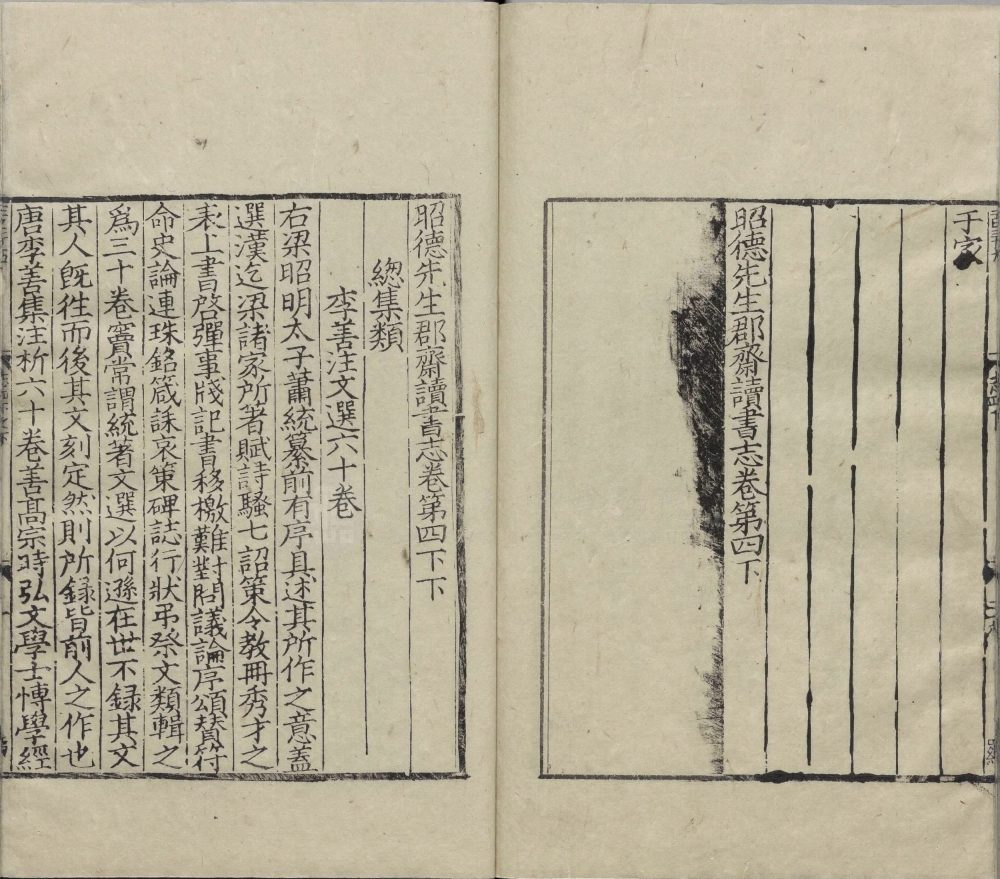 于家
昭德先生郡齋讀書志卷第四下
昭德先生郡齋讀書志卷第四下下
緫集類
李善注文選六十卷
右梁昭明太子蕭統纂前有序具述其所作之意蓋
選漢迄梁諸家所著賦詩騷七詔策令教冊秀才之
表上書啓彈事牋記書移檄難對問議論序頌賛符
命史論連珠銘箴誄哀策碑誌行狀弔祭文類輯之
爲三十卷竇常謂統著文選以何遜在世不録其文
其人旣徃而後其文刻定然則所録皆前人之作也
唐李善集注析六十卷善髙宗時弘文學士愽學經